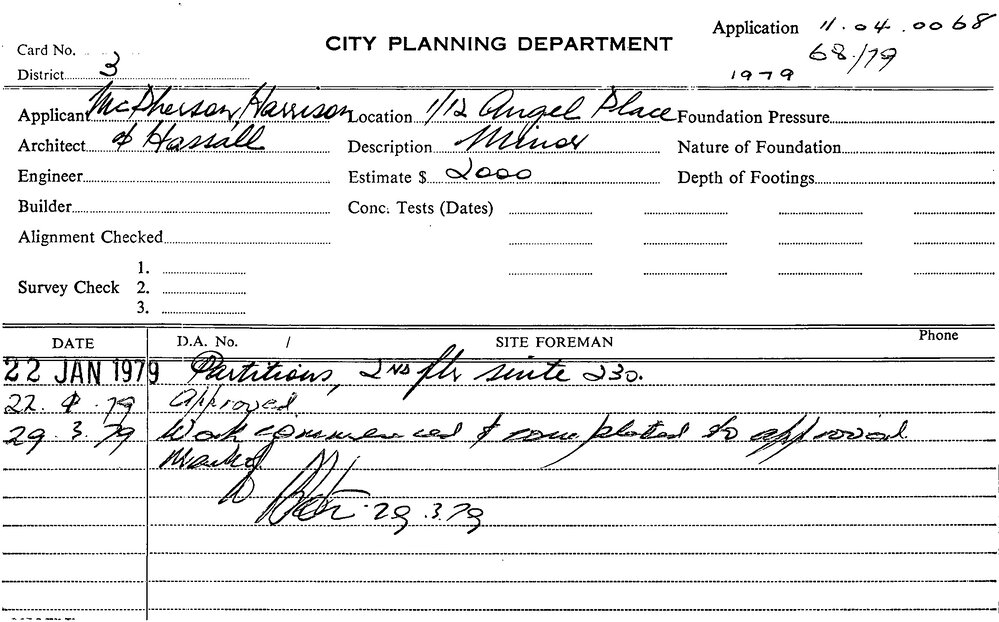 Application 11.04.0068
CITY PLANNING DEPARTMENT
68/79
Card No.
District 3
1979
Applicant McPherson, Harrison Location 1/12 Angel Place Foundation Pressure
Architect & Hassall Description Minor Nature of Foundation
Engineer Estimate $ 2000 Depth of Footings
Builder Conc. Tests (Dates)
Alignment Checked
1.
Survey Check 2.
3.
DATE D.A. No. / SITE FOREMAN Phone
22 JAN 1979 Partitions, 2ND flr suite 230.
79 Approved
29.3.79 Work commenced & completed to approval
29.3.79